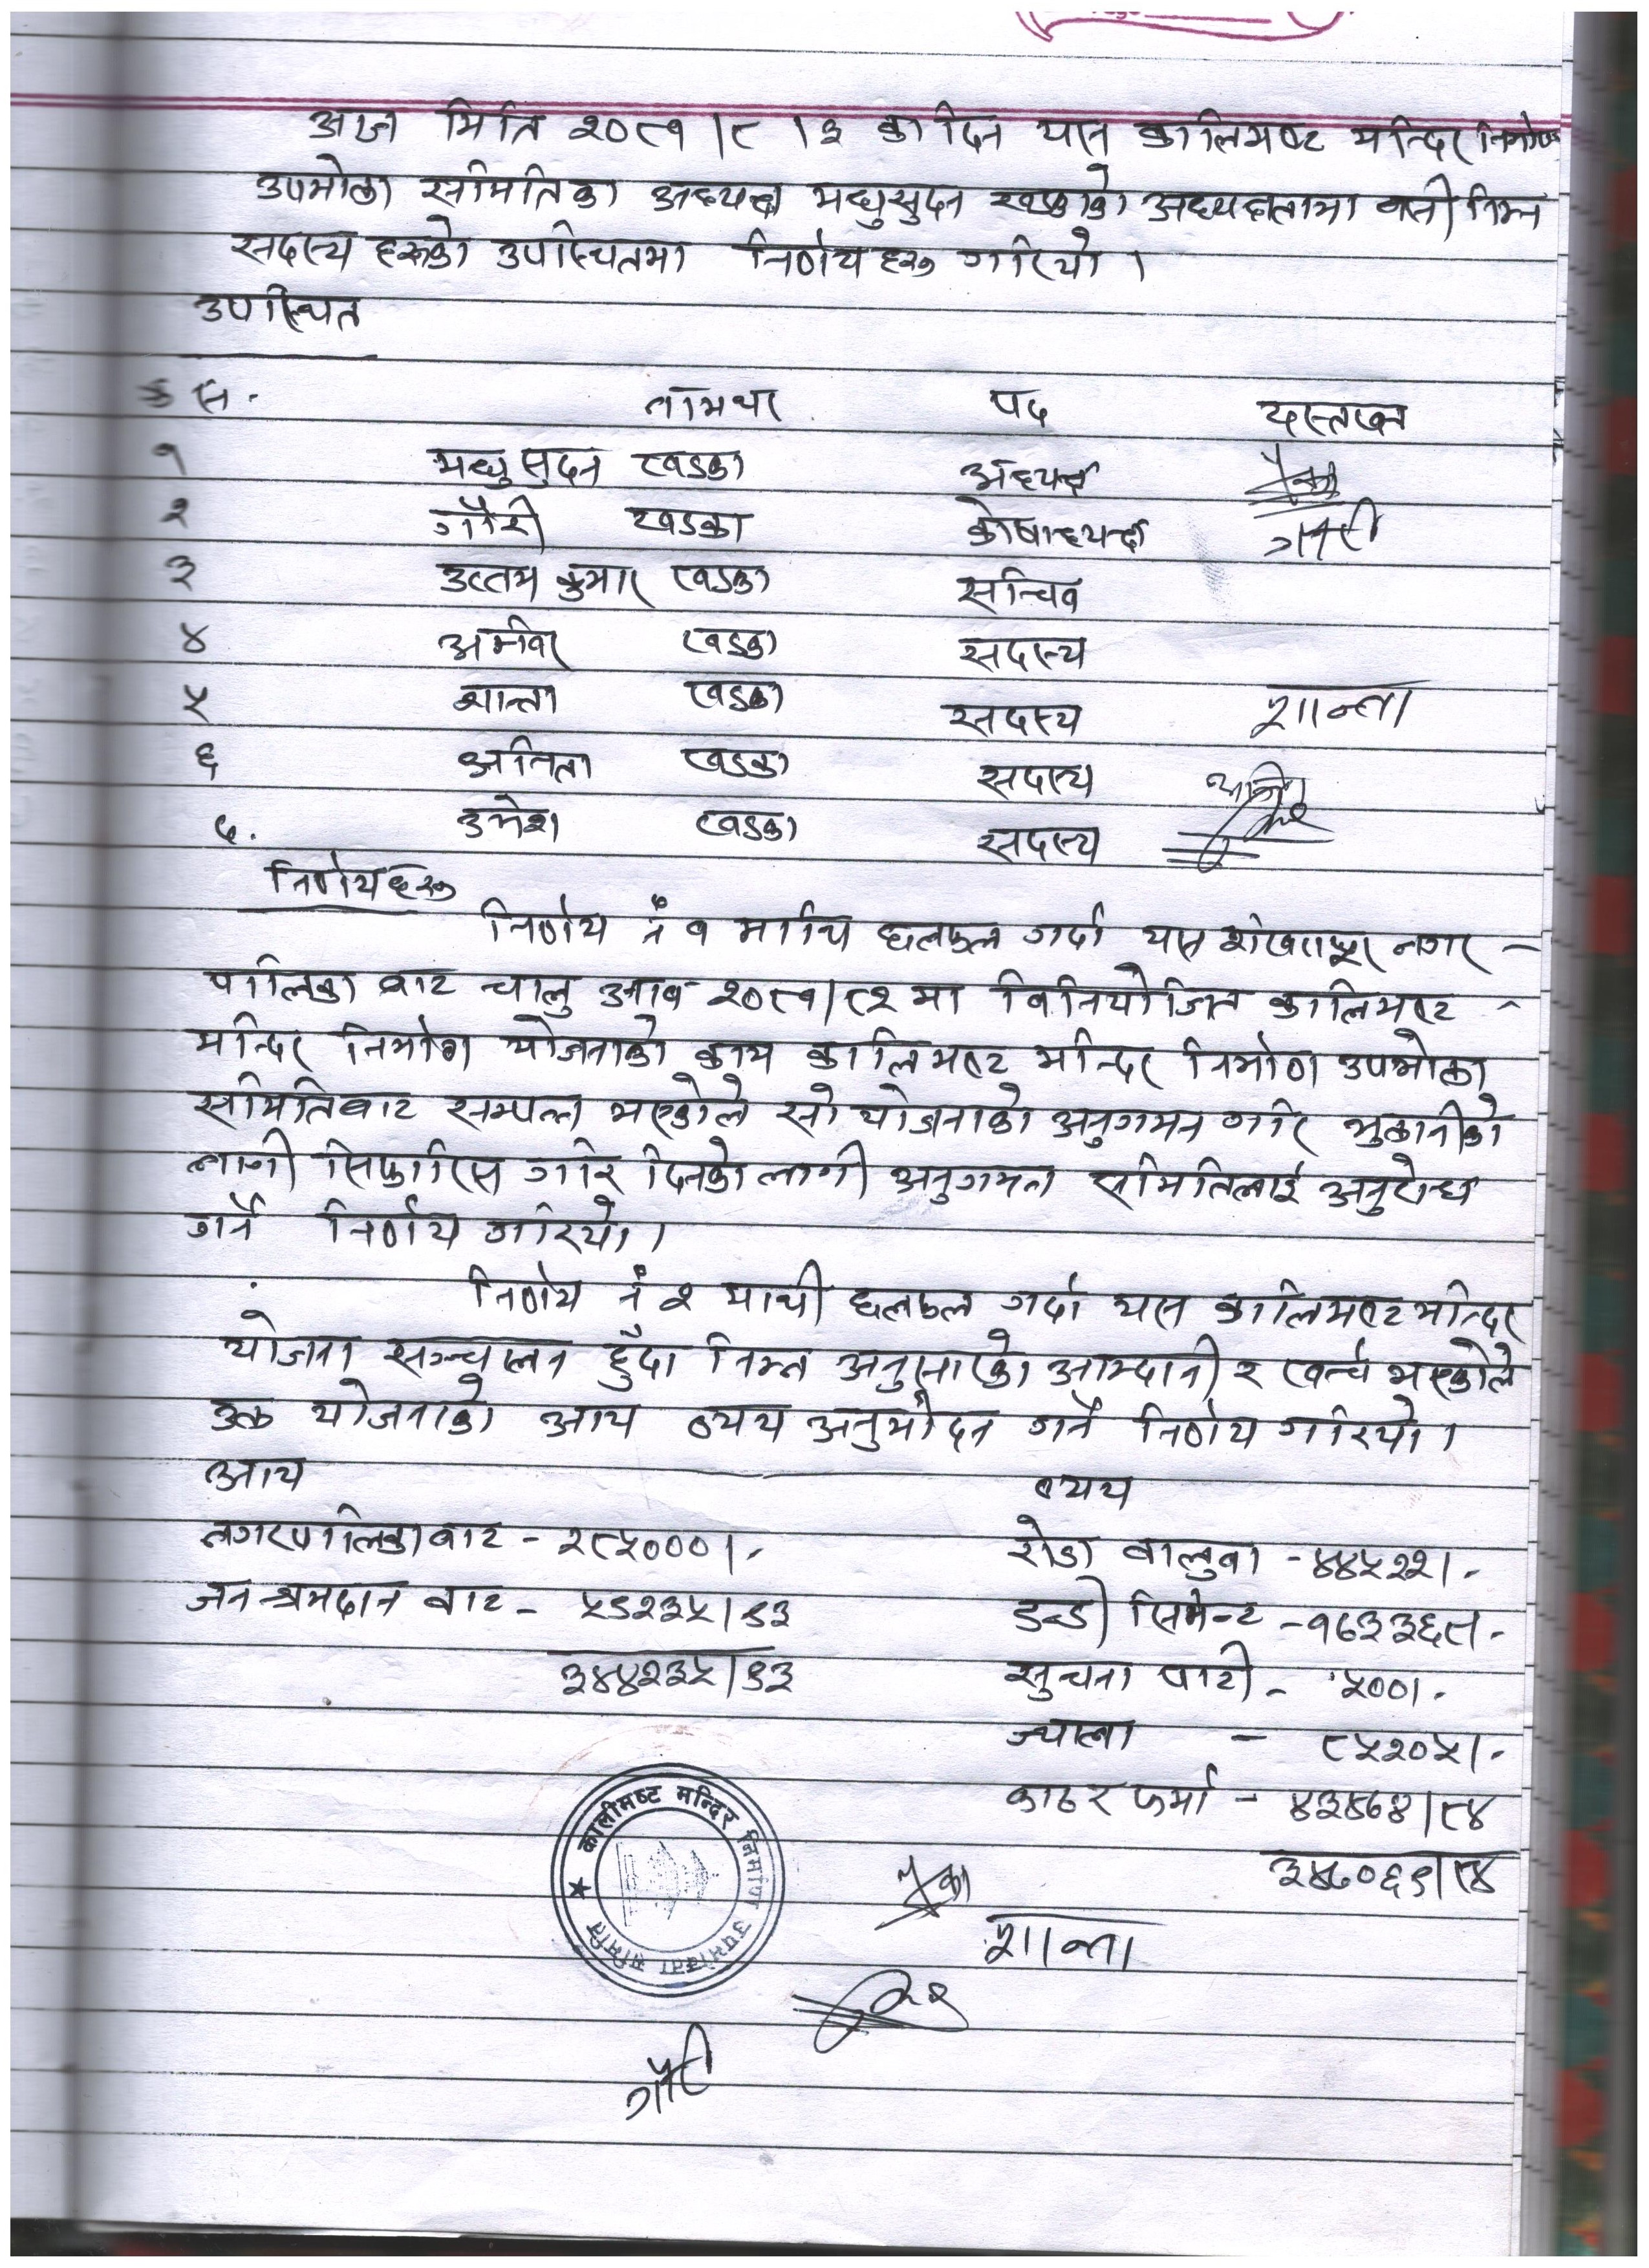 आज मिति २०८१।८।३ का दिन यस कालिमष्ट मन्दिर निर्माण
उपभोक्ता समितिका अध्यक्ष मधुसुदन खड्काको अध्यक्षतामा वसी निम्न
सदस्य हरुको उपस्थितमा निर्णय हरु गरियो ।
उपस्थित
क्र स. नामथर पद दस्तखत
१ मधुसुदन खडका अध्यक्ष
२ गौरी खडका कोषाध्यक्ष गौरी
३ उत्तम कुमार खडका सचिव
४ अमविर खडका सदस्य
५ शान्ता खडका सदस्य शान्ता
६ अनिता खडका सदस्य अनिता
७. उमेश खडका सदस्य
निर्णयहरु
निर्णय नं १ माथि छलफल गर्दा यस शंखरापुर नगर -
पालिका बाट चालु आव २०८१/८२ मा विनियोजित कालिमष्ट -
मन्दिर निर्माण योजनाको काम कालिमष्ट मन्दिर निर्माण उपभोक्ता
समितिबाट सम्पन्न भएकोले सो योजनाको अनुगमन गरि भुक्तानीको
लागी सिफारिस गरि दिनको लागी अनुगमन समितिलाई अनुरोध
गर्ने निर्णय गरियो ।
निर्णय नं २ माथी छलफल गर्दा यस कालिमष्ट मन्दिर
योजना सञ्चालन हुँदा निम्न अनुसारको आम्दानी र खर्च भएकोले
उक्त योजनाको आय व्यय अनुमोदन गर्ने निर्णय गरियो ।
आय व्यय
नगरपालिका बाट - २८५०००।- रोडा वालुवा - ४४५२२।-
जन श्रमदान बाट - ५९२३५।९३ डन्डी सिमेन्ट - १७३३६८।-
३४४२३५।९३ सुचना पाटी - ५००।-
ज्याला - ८५२०५।-
काठ र फर्मा - ४३४७४।८४
३४७०६९।८४
कालीमष्ट मन्दिर निर्माण उपभोक्ता समिति
शान्ता
गौरी